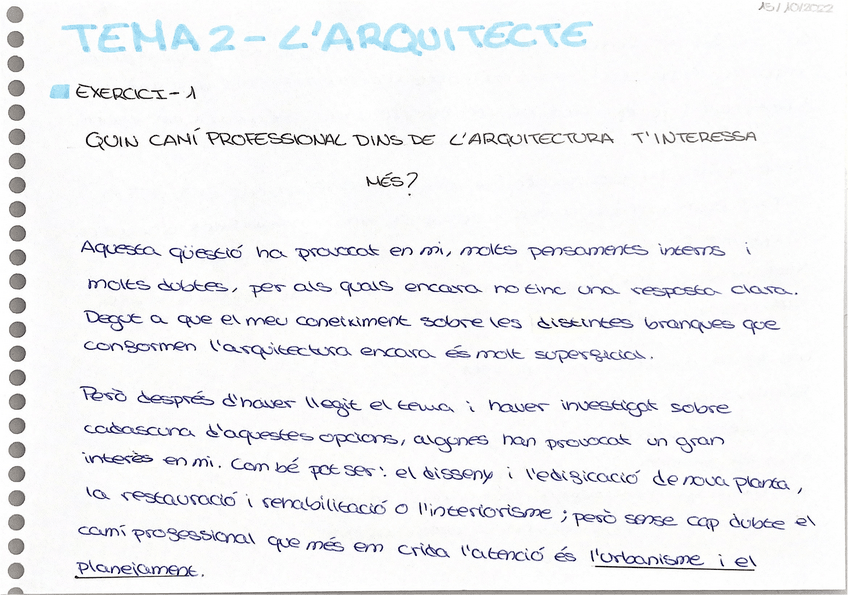 13/10/2022
TEMA 2 - L'ARQUITECTE
EXERCICI - 1
QUIN CAMÍ PROFESSIONAL DINS DE L'ARQUITECTURA T'INTERESSA
MÉS?
Aquesta qüestió ha provocat en mi, molts pensaments interns i
molts dubtes, per als quals encara no tinc una resposta clara.
Degut a que el meu coneiximent sobre les distintes branques que
conformen l'arquitectura encara és molt superficial.
Però després d'haver llegit el tema i haver investigat sobre
cadascuna d'aquestes opcions, algunes han provocat un gran
interès en mi. Com bé pot ser: el disseny i l'edificació de nova planta,
la restauració i rehabilitació o l'interiorisme; però sense cap dubte el
camí professional que més em crida l'atenció és l'urbanisme i el
planejament.